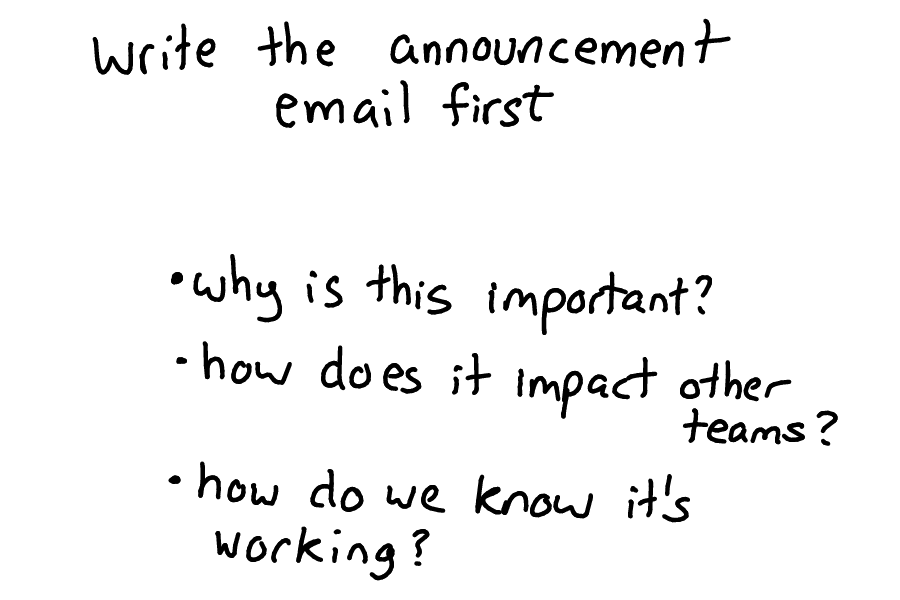 Write the announcement
email first
•why is this important?
•how does it impact other
teams?
•how do we know it's
working?